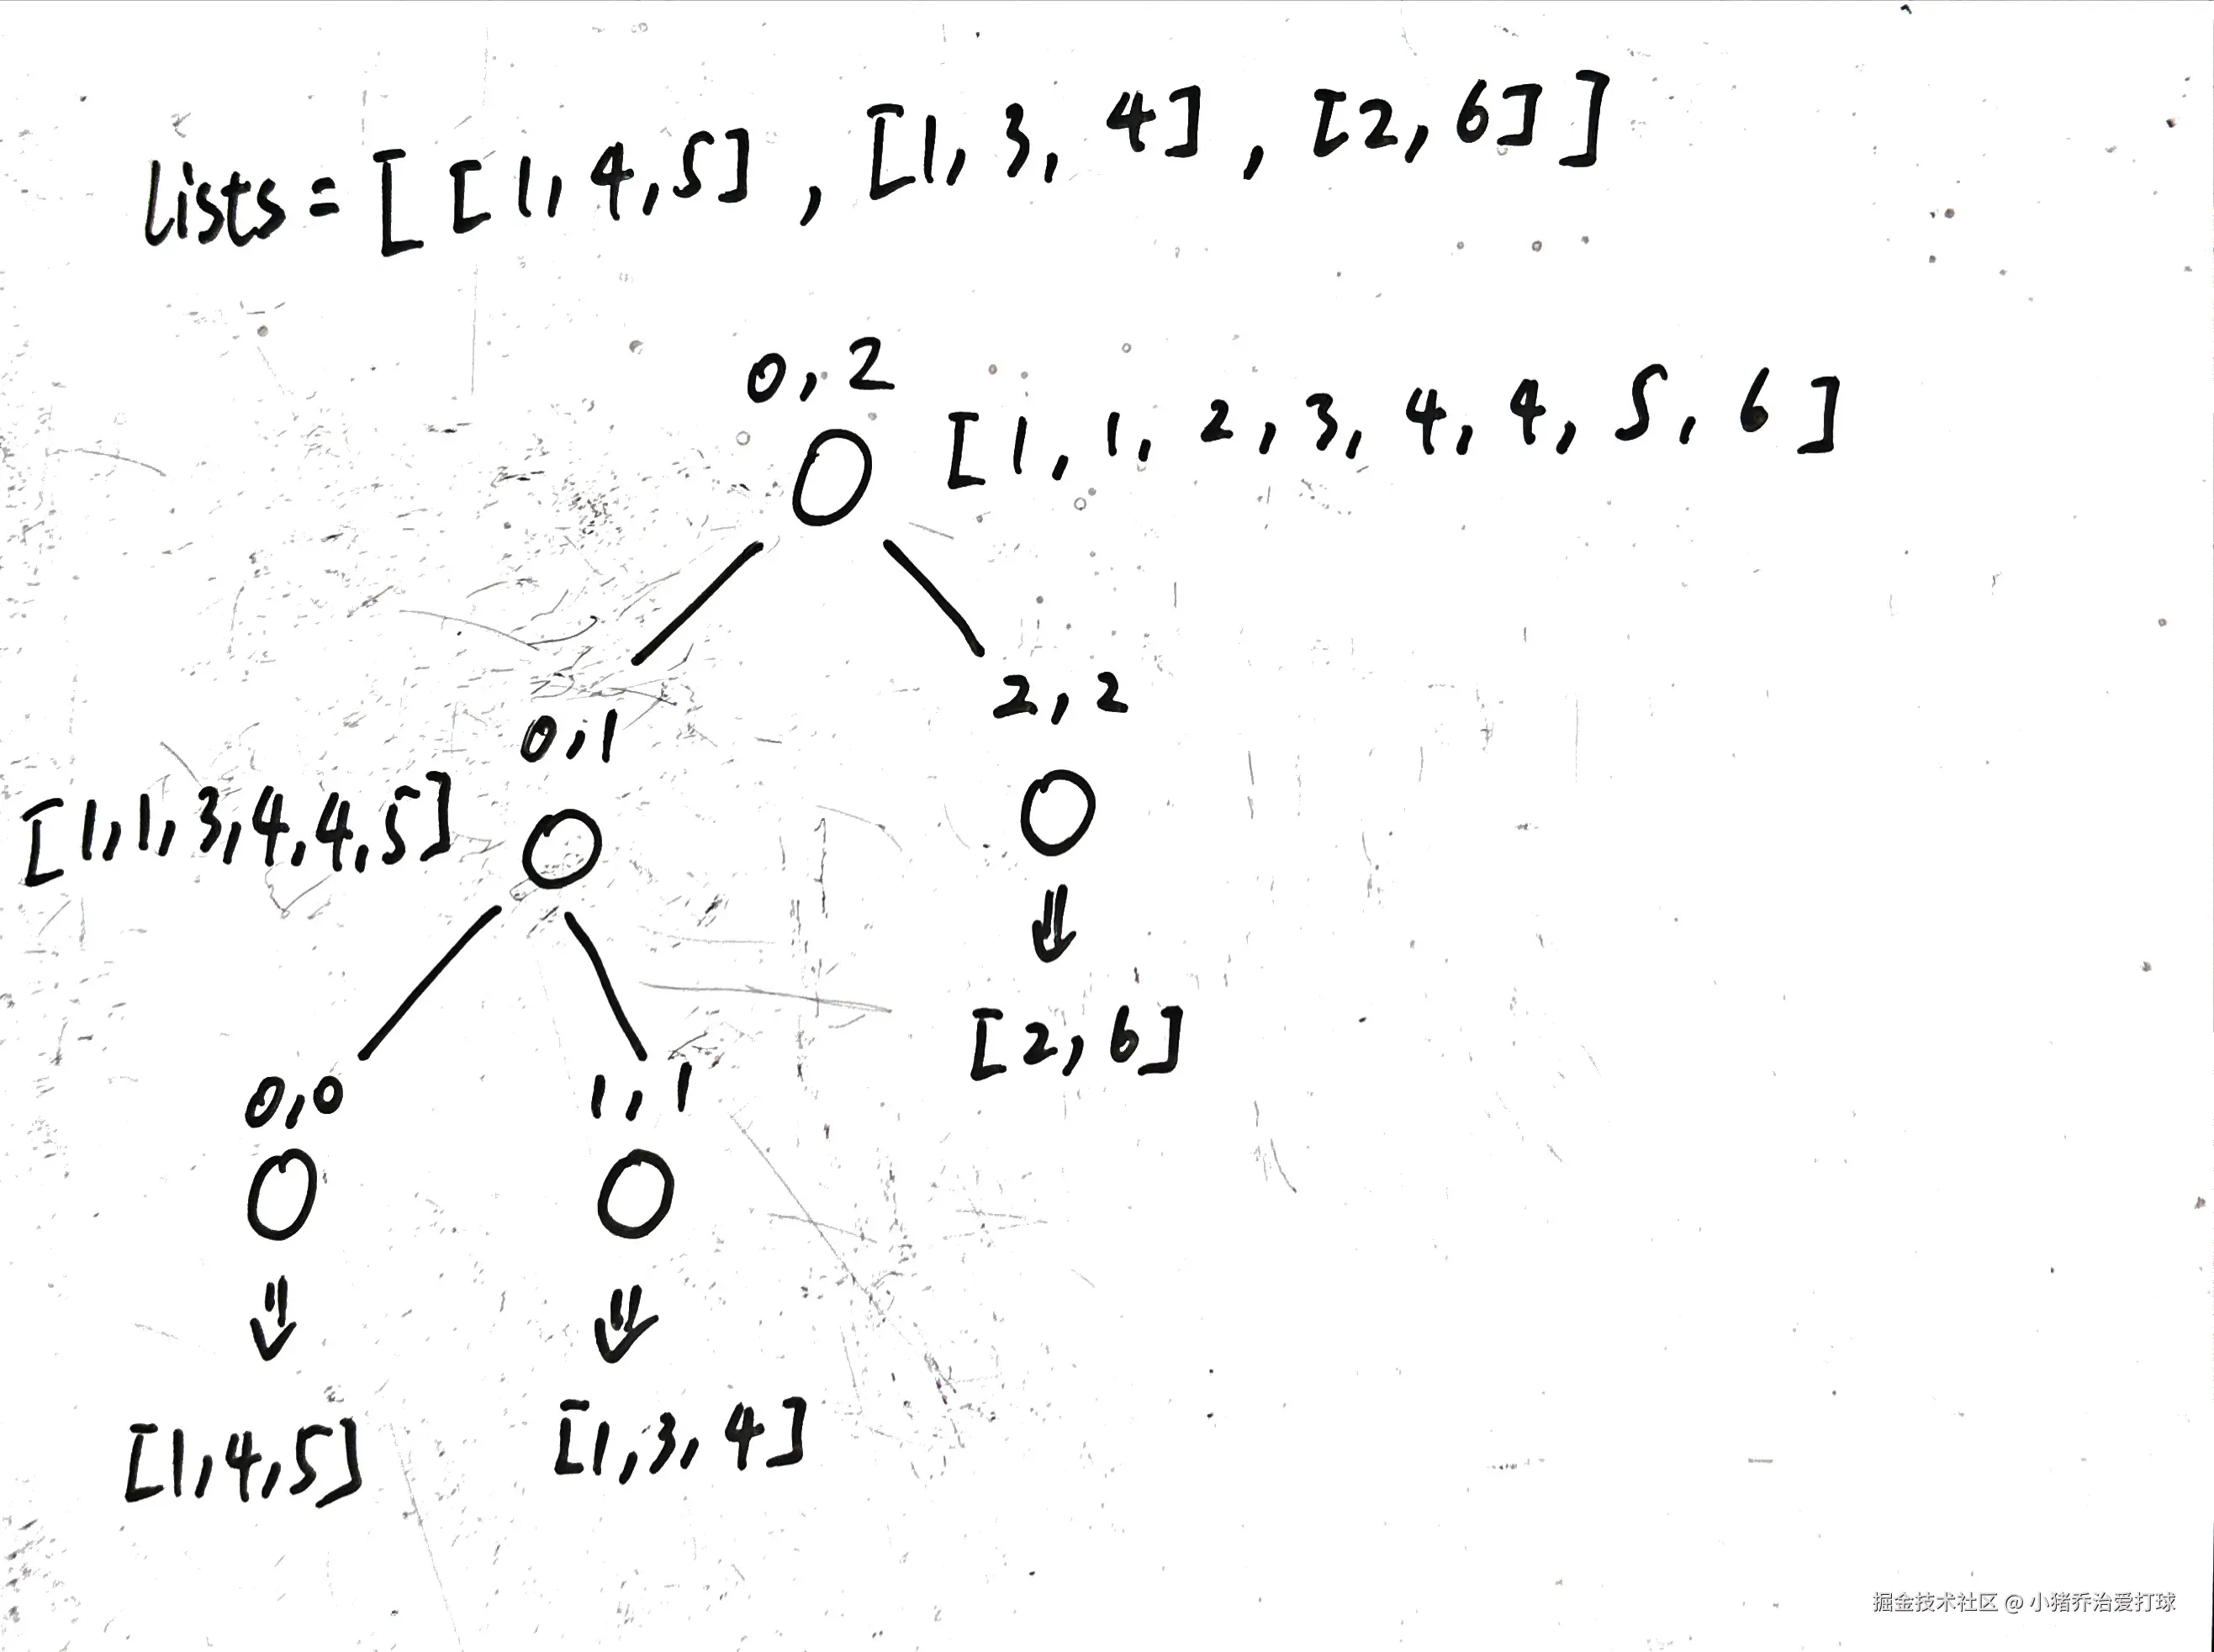 lists = [[1,4,5], [1,3,4], [2,6]]
0,2
[1,1,2,3,4,4,5,6]
2,2
0,1
[1,1,3,4,4,5]
[2,6]
0,0
1,1
[1,4,5]
[1,3,4]
掘金技术社区 @ 小猪乔治爱打球